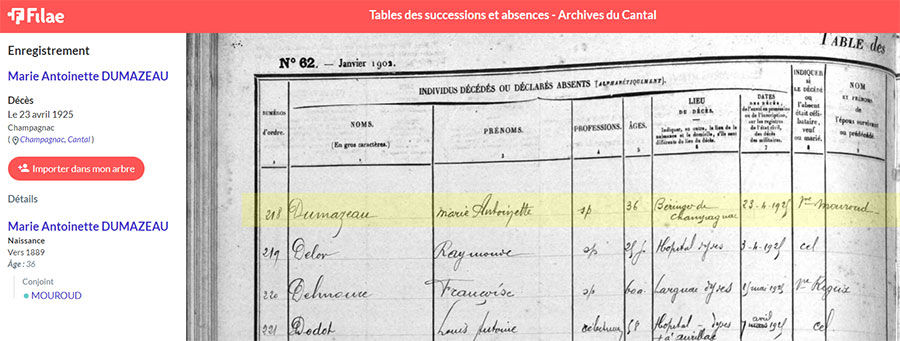 Filae
Tables des successions et absences - Archives du Cantal
Enregistrement
Marie Antoinette DUMAZEAU
Décès
Le 23 avril 1925
Champagnac
(Champagnac, Cantal )
Importer dans mon arbre
Détails
Marie Antoinette DUMAZEAU
Naissance
Vers 1889
Âge : 36
Conjoint
MOUROUD
TABLE des
N° 62. — Janvier 1902.
INDIVIDUS DÉCÉDÉS OU DÉCLARÉS ABSENTS (ALPHABÉTIQUEMENT).
NUMÉRO
d'ordre.
NOMS.
(En gros caractères.)
PRÉNOMS.
PROFESSIONS.
ÂGES.
LIEU
DU DÉCÈS.
Indiquer, en outre, le lieu de la
naissance et le domicile, s'ils sont
différents du lieu du décès.
DATES
DES DÉCÈS,
des décès
des militaires.
INDIQUER
si
LE DÉCÉDÉ
ou
l'absent
était céli-
bataire,
veuf
ou marié.
NOM
ET PRÉNOMS
de
l'époux survivant
ou prédécédé
218 Dumazeau Marie Antoinette sp 36 Champagnac 23-4-1925 Mouroud
219 Delor Raymonde sp Hopital 3-4-1925 cel
220 Françoise sp 60a
221 Dodot Louis Antoine Hopital cel